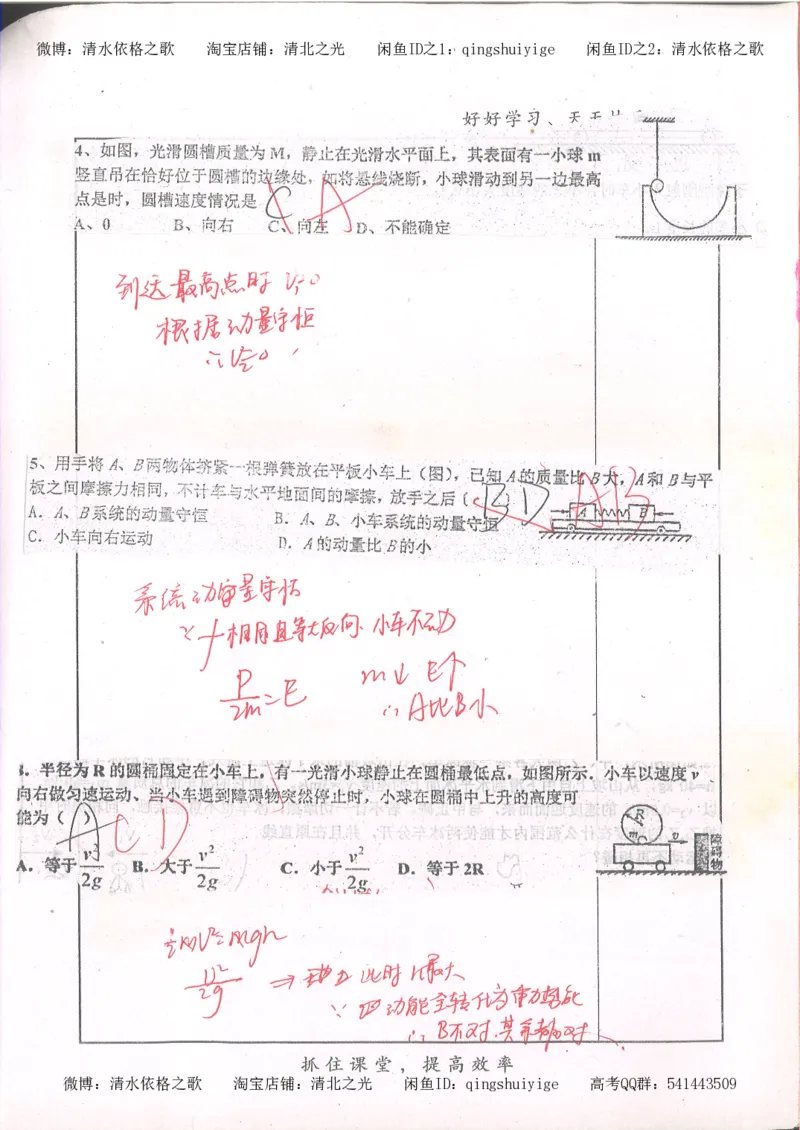 微博：清水依格之歌 淘宝店铺：清北之光 闲鱼ID之1：qingshuiyige 闲鱼ID之2：清水依格之歌
好好学习、天天
4、如图，光滑圆槽质量为 M，静止在光滑水平面上，其表面有一小球 m
竖直吊在恰好位于圆槽的边缘处，如将悬线烧断，小球滑动到另一边最高
点是时，圆槽速度情况是 C A
A、0 B、向右 C、向左 D、不能确定
到达最高点时
根据动量守恒
5、用手将 A、B 两物体挤紧一根弹簧放在平板小车上（图），已知 A 的质量比 B 大，A 和 B 与平
板之间摩擦力相同，不计车与水平地面间的摩擦，放手之后（ BD AB
A．A、B 系统的动量守恒 B．A、B、小车系统的动量守恒
C．小车向右运动 D．A 的动量比 B 的小
A B
系统动量守恒
∵ f 相同且等大反向 小车不动
P/2m = E m↓ E↑
∴ A比B小
半径为 R 的圆桶固定在小车上，有一光滑小球静止在圆桶最低点，如图所示．小车以速度 v
向右做匀速运动、当小车遇到障碍物突然停止时，小球在圆桶中上升的高度可
能为（ A ） C D
A．等于 v²/2g B．大于 v²/2g C．小于 v²/2g D．等于 2R
R m v 障碍物
½mv²=mgh
v²/2g ⇒ 此时h最大
∵ 动能全转化为重力势能
∴ B不对.其余都对
抓住课堂，提高效率
微博：清水依格之歌 淘宝店铺：清北之光 闲鱼ID：qingshuiyige 高考QQ群：541443509